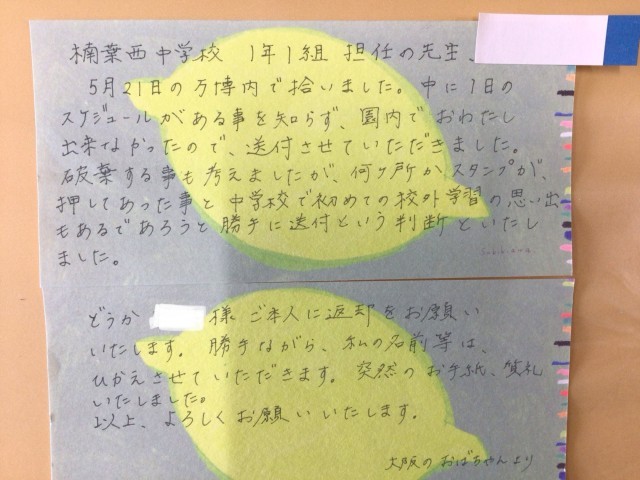 楠葉西中学校 1年1組 担任の先生、
5月21日の万博内で拾いました。中に1日の
スケジュールがある事を知らず、園内でおわたし
出来なかったので、送付させていただきました。
破棄する事も考えましたが、何ヶ所かスタンプが、
押してあった事と中学校で初めての校外学習の思い出
もあるであろうと勝手に送付という判断といたし
ました。
どうか 様 ご本人に返却をお願い
いたします。勝手ながら、私の名前等は、
ひかえさせていただきます。突然のお手紙、失礼
いたしました。
以上、よろしくお願いいたします。
大阪のおばちゃんより